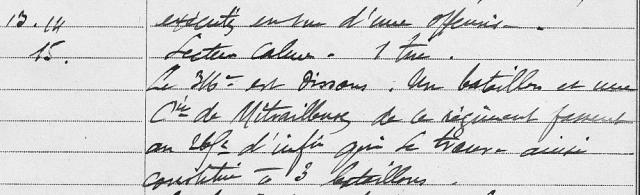 13.14 exécutés en vue d'une offensive.
15. Secteur calme. 1 tué.
Le 316e est dissous. Un bataillon et une
Cie de Mitrailleuses de ce régiment passent
au 265e d'infie qui se trouve ainsi
constitué à 3 bataillons.